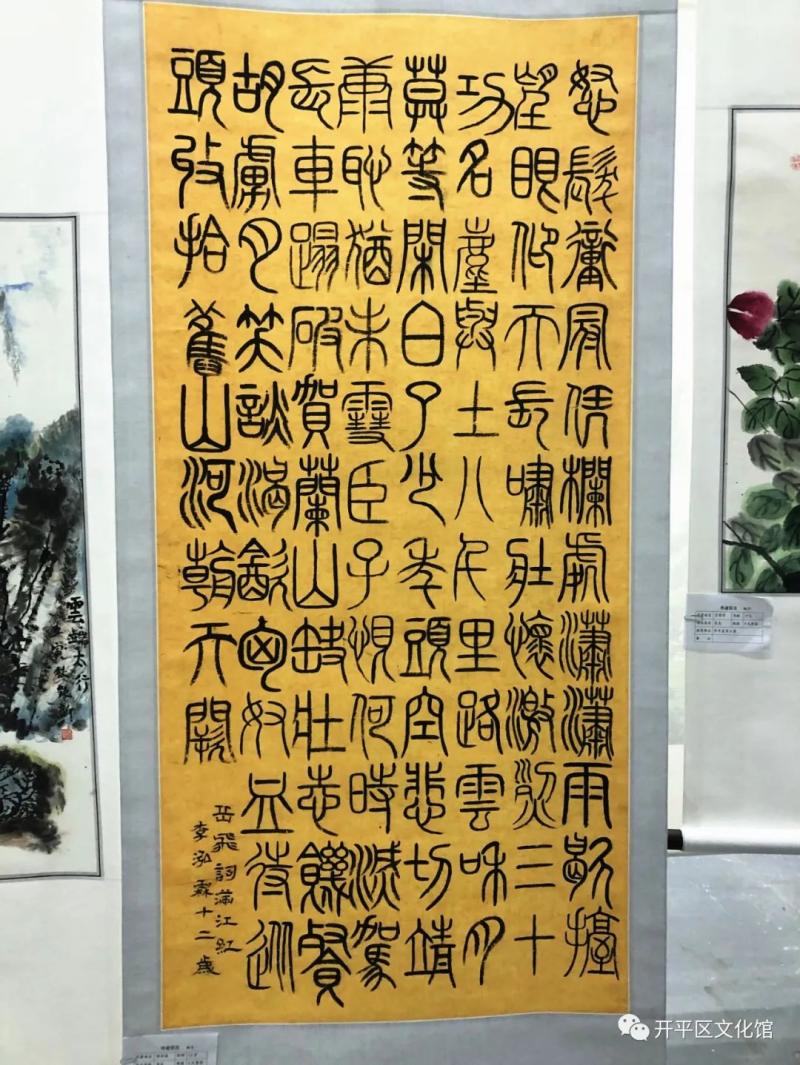 怒髮衝冠凭欄處瀟瀟雨歇擡
望眼仰天長嘯壯懷激烈三十
功名塵與土八千里路雲和月
莫等閑白了少年頭空悲切靖
康恥猶未雪臣子恨何時滅駕
長車蹋破賀蘭山缺壯志饑餐
胡虜肉笑談渴飲匈奴血待從
頭收拾舊山河朝天闕
岳飛詞滿江紅
李泓霖十二歲
雲太行
开平区文化馆